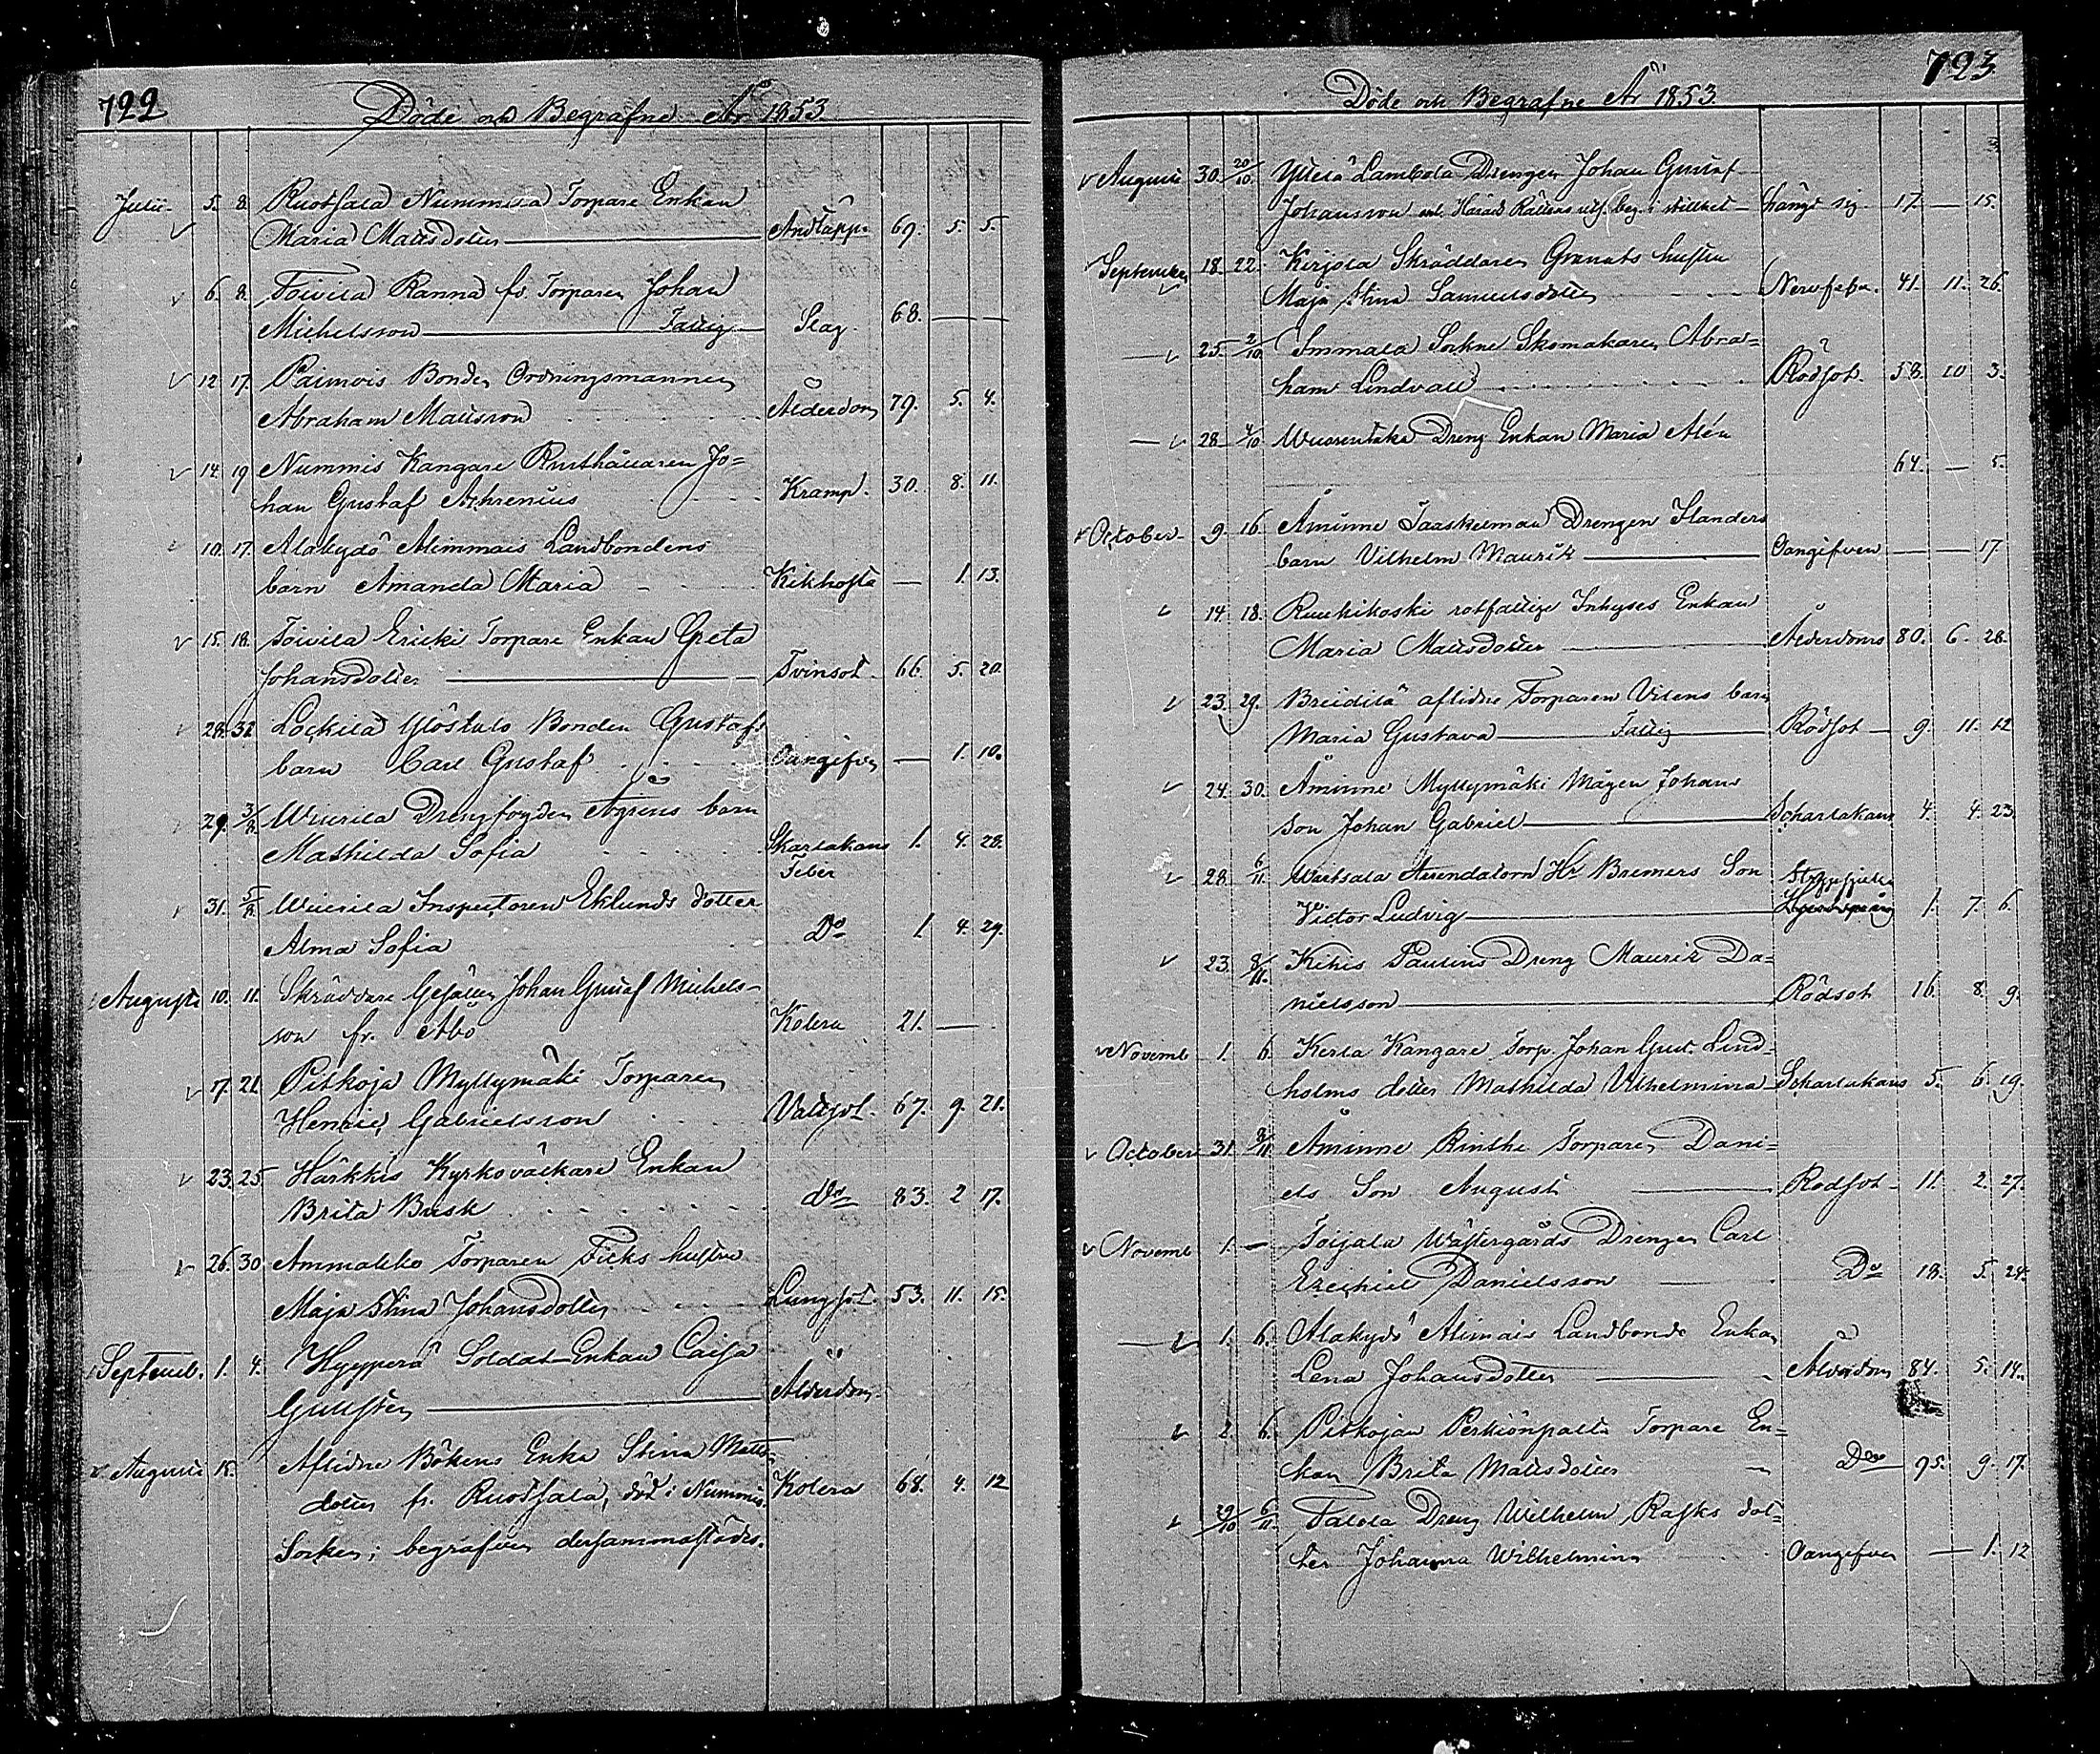 722
Döde och Begrafne År 1853
Julii 5. 8. Ruotsala Nummela Torpare Enkan
Maria Mattsdotter Andtäppa 69. 5. 5.
6. 8. Toivila Ranna fr. Torparen Johan
Michelsson Fattig Slag 68.
12 17. Paimois Bonden Ordningsmannen
Abraham Mattsson Ålderdom 79. 5. 4.
14. 19 Nummis Kangare Rusthållaren Jo=
han Gustaf Achrenius Kramp. 30. 8. 11.
10. 17. Alakydö Alimmais Landbondens
barn Amanda Maria Kikhosta — 1. 13.
15. 18. Toivila Ericki Torpare Enkan Greta
Johansdotter Tvinsot 66. 5. 20.
28. 31. Yöstals Bonden Gustafs
barn Carl Gustaf Oangifven — 1. 10.
29. 3/8. Wiurila Drengfogden Ågrens barn
Mathilda Sofia Skarlakans 1. 4. 28.
Feber
31. 5/8. Wiurila Inspectoren Eklunds dotter
Alma Sofia Do 1. 4. 29.
Augusti 10. 11. Skräddare Gesällen Johan Gustaf Michels-
son fr. Åbo Kolera 21. —
17. 21. Pitkoja Myllymäki Torparen
Henric Gabrielsson Vattsot. 67. 9. 21.
23. 25 Härkkis Kyrkoväckare Enkan
Brita Busk do 83. 2 17.
26. 30 Ammakko Torparen Ficks hustru
Maja Stina Johansdotter Lungsot. 53. 11. 15.
Septemb. 1. 4. Hyyperä Soldat Enkan Caisa
Gullsten Ålderdom
Augusti 15. Aflidne Bökens Enka Stina Matts-
dotter fr. Ruotsala, död i Nummis Kolera 68. 4. 12
Socken; begrafven dersammastädes.
723
Döde och Begrafne År 1853.
Augusti 30. 20/10. Lambola Drengen Johan Gustaf
Johansson enl. Härads Rättens utsl. beg. i stillhet hängt sig 17. — 15.
September 18. 22. Kerjola Skräddaren Granats hustru
Maja Stina Samuelsdotter Nervfeber. 41. 11. 26.
25. 2/10 Immala Sockne Skomakaren Abra=
ham Lindvall Rödsot. 58. 10 3.
28. 4/10 Wuorentaka Dreng Enkan Maria Alén
64. — 5.
October 9. 16. Åminne Drengen Flanders
barn Vilhelm Maurik Oangifven — — 17
14. 18. Ruukikoski rotfattige Inhyses Enkan
Maria Mattsdotter Ålderdoms 80. 6. 28.
23. 29. aflidne Torparen Vilens barn
Maria Gustava Fattig Rödsot 9. 11. 12
24. 30. Åminne Myllymäki Mågen Johans
Son Johan Gabriel Scharlakans 4. 4. 23.
28. 6/11. Arrendatorn Hr Bremers Son
Victor Ludvig 1. 7. 6.
23. 8/11. Kihis Paulins Dreng Maurik Da=
nielsson Rödsot 16. 8. 9.
Novemb 1. 6. Kerla Kangare Torp. Johan Gust. Lind=
holms dotter Mathilda Vilhelmina Scharlakans 5. 6. 19.
October 31. 8/11 Åminne Rinske Torparen Dani=
els Son August Rödsot 11. 2. 27.
Novemb 1. — Toijala Wästergårds Drengen Carl
Ezechiel Danielsson Do 18. 5. 24.
1. 6. Alakydö Alimais Landbonde Enkan
Lena Johansdotter Ålderdom 84. 5. 14.
2. 6. Pitkojan Torpare En=
kan Brita Mattsdotter Do 95. 9. 17.
29/10 6/11. Talola Dreng Wilhelm Rasks dot=
ter Johanna Wilhelmina Oangifven — 1. 12